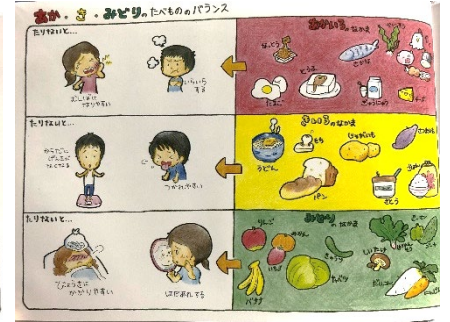 あか・き・みどりのたべもののバランス
たりないと…
むしばに
なりやすい
いらいら
する
あかいろのなかま
なっとう
さかな
とうふ
たまご
ぎゅうにゅう
たりないと…
からだに
げんきが
なくなる
つかれやすい
きいろのなかま
うどん
もち
じゃがいも
さつまいも
パン
さとう
たりないと…
びょうきに
かかりやすい
はだあれする
みどりのなかま
りんご
みかん
いちご
バナナ
きゅうり
キャベツ
しいたけ